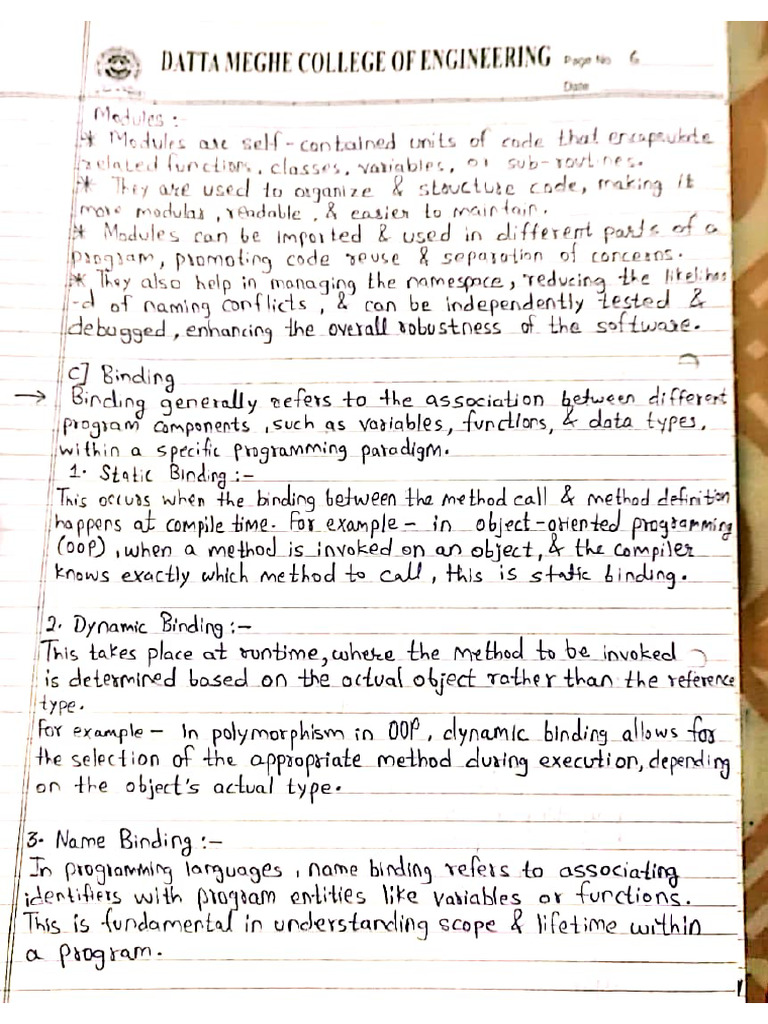 DATTA MEGHE COLLEGE OF ENGINEERING Page No 6
Date
Modules :-
* Modules are self-contained units of code that encapsulate
related functions, classes, variables, or sub-routines.
* They are used to organize & structure code, making it
more modular, readable, & easier to maintain.
* Modules can be imported & used in different parts of a
program, promoting code reuse & separation of concerns.
* They also help in managing the namespace, reducing the likelihoo
-d of naming conflicts, & can be independently tested &
debugged, enhancing the overall robustness of the software.
C] Binding
→ Binding generally refers to the association between different
program components, such as variables, functions, & data types,
within a specific programming paradigm.
1. Static Binding :-
This occurs when the binding between the method call & method definition
happens at compile time. For example - in object-oriented programming
(OOP), when a method is invoked on an object, & the compiler
knows exactly which method to call, this is static binding.
2. Dynamic Binding :-
This takes place at runtime, where the method to be invoked
is determined based on the actual object rather than the reference
type.
For example - In polymorphism in OOP, dynamic binding allows for
the selection of the appropriate method during execution, depending
on the object's actual type.
3. Name Binding :-
In programming languages, name binding refers to associating
identifiers with program entities like variables or functions.
This is fundamental in understanding scope & lifetime within
a program.